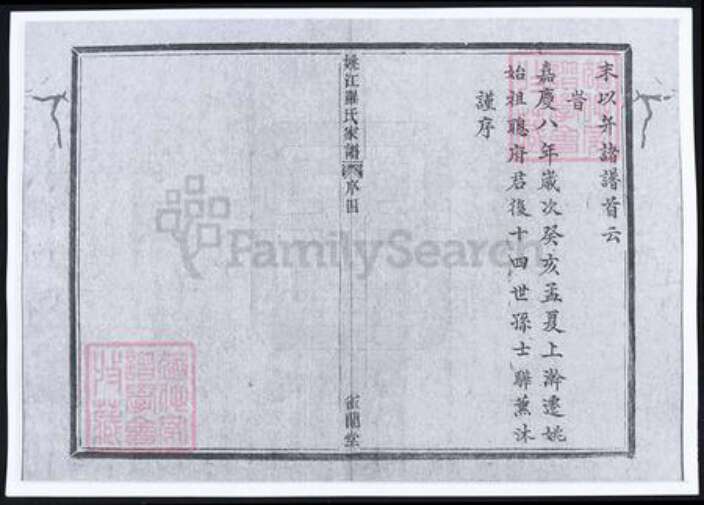 末以弁諸譜首云
旹
嘉慶八年歲次癸亥孟夏上澣遷姚
始祖聰府君後十四世孫士聯薰沐
謹序
姚江羅氏家譜 序四
FamilySearch